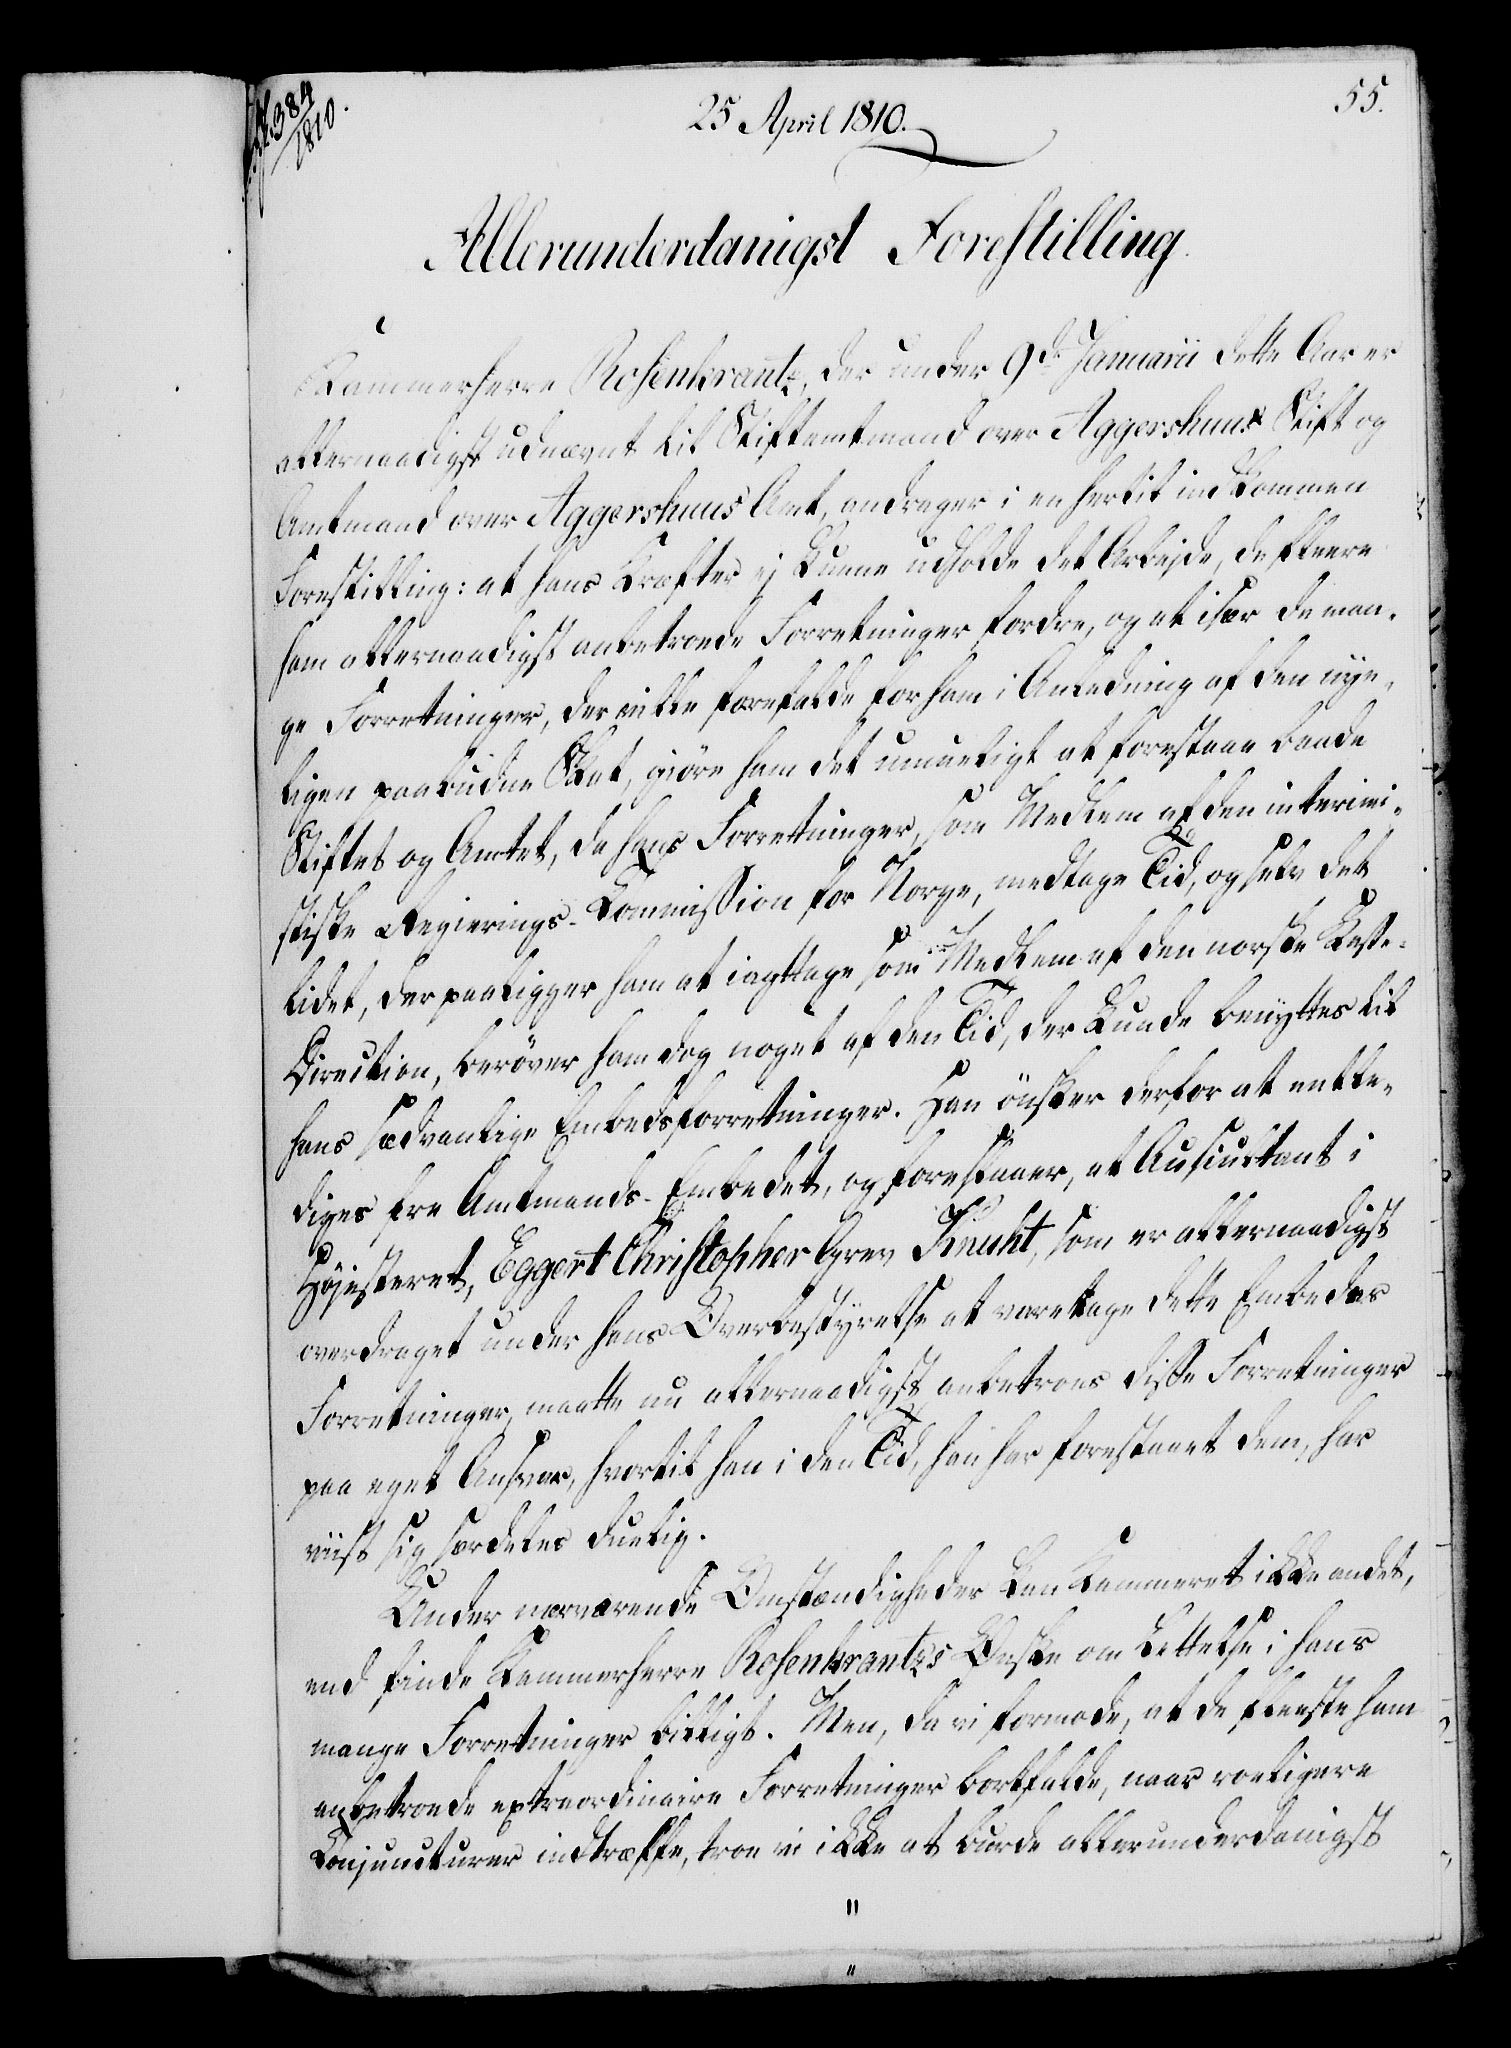 384
1810.
25 April 1810.
55.
Allerunderdanigst Forestilling.
Kammerherre Rosenkrantz, der under 9de Januarii dette Aar er
allernaadigst udnævnt til Stiftamtmand over Aggershuus Stift og
Amtmand over Aggershuus Amt, andrager i en hertil indkommen
Forestilling: at hans Kræfter ej kunne udholde det Arbejde, de fleere
ham allernaadigst anbetroede Forretninger fordre, og at især de man-
ge Forretninger, der ville forefalde for ham i Anledning af den nye-
ligen paabudne Skat, giöre ham det umueligt at forestaae baade
Stiftet og Amtet, da hans Forretninger, som Medlem af den interimi-
stiske Regierings-Commission for Norge, medtage Tid, og selv det
lidet, der paaligger ham at iagttage som Medlem af den norske Poste-
Direction, beröver ham dog noget af den Tid, der kunde benyttes til
hans sædvanlige Embedsforretninger. Han önsker derfor at entle-
diges fra Amtmands-Embedet, og foreslaaer, at Auscultant i
Höjesteret, Eggert Christopher Grev Knuht, som er allernaadigst
overdraget under hans Overbestyrelse at varetage dette Embedes
Forretninger, maatte nu allernaadigst anbetroes disse Forretninger
paa eget Ansvar, hvortil han i den Tid, han har forestaaet dem, har
viist sig særdeles duelig.
Under nærværende Omstændigheder kan Kammeret ikke andet,
end finde Kammerherre Rosenkrantzs Önske om Lettelse i hans
mange Forretninger billigt. Men, da vi formode, at de fleeste ham
anbetroede extraordinaire Forretninger bortfalde, naar roeligere
Conjuncturer indtræffe, troe vi ikke at burde allerunderdanigst
"
"